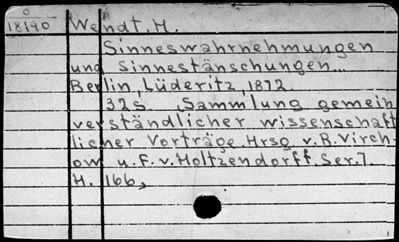 0
18190 Wendt, H.
Sinneswahrnehmungen
und Sinnestänschungen...
Berlin, Lüderitz, 1872
32s. Sammlung gemein
verständlicher wissenschaft
licher Vorträge. Hrsg. v. R. Virch-
ow u. F. v. Holtzendorff. Ser. 7.
H. 166,